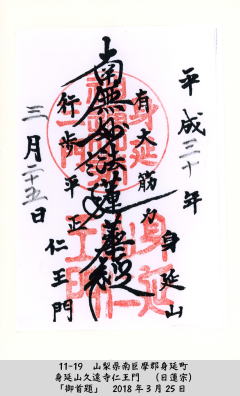 平成三十年
身延山
有大筋力
南無妙法蓮華経
行歩平正
仁王門
三月二十五日
11-19　山梨県南巨摩郡身延町
身延山久遠寺仁王門　（日蓮宗）
「御首題」　2018年3月25日